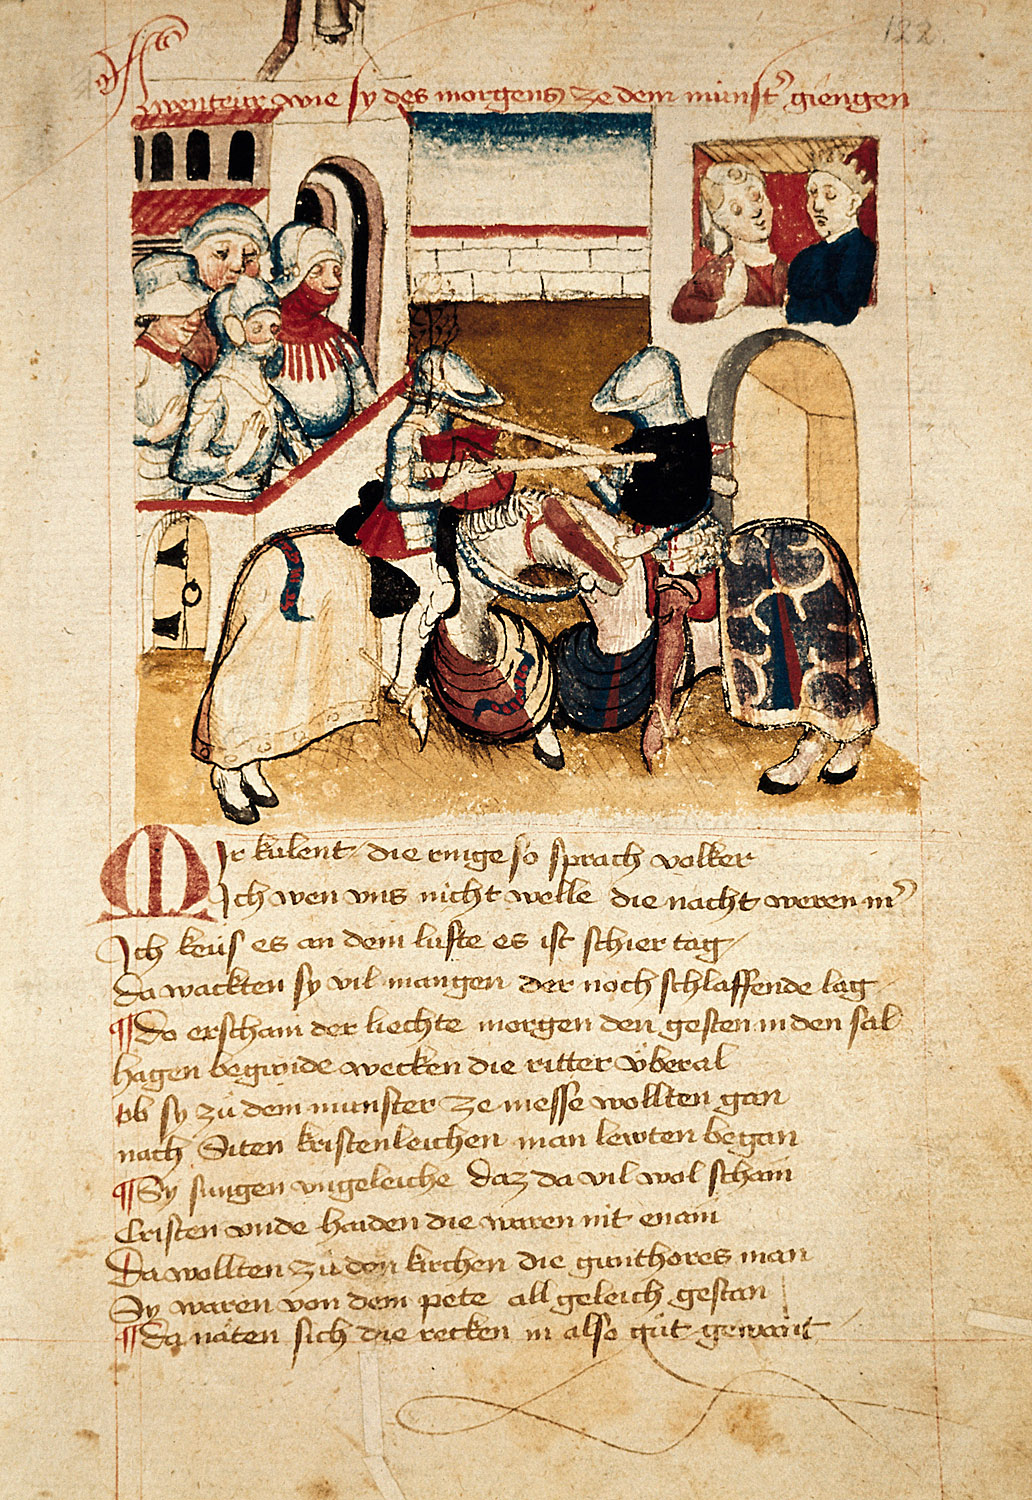 122.
Awenteur wie sy des morgens ze dem munst' giengen
Mir kulent die ringe so sprach volker
Ich wen vns nicht welle die nacht weren m'
Ich keüs es an dem lufte es ist schier tag
Da wackten sy vil mangen der noch schlaffende lag
¶ Do erschain der liechte morgen den gesten in den sal
hagen begunde wecken die ritter v̈beral
ob sy zů dem munster ze messe wollten gan
nach Siten kristenleichen man lewten began
¶ Sy sungen vngeleiche daz da vil wol schain
Cristen vnde haiden die waren nit enain
Da wollten zů den kirchen die gunthores man
Sy waren von dem pete all geleich gestan
¶ da näten sich die recken in also gůt gewant